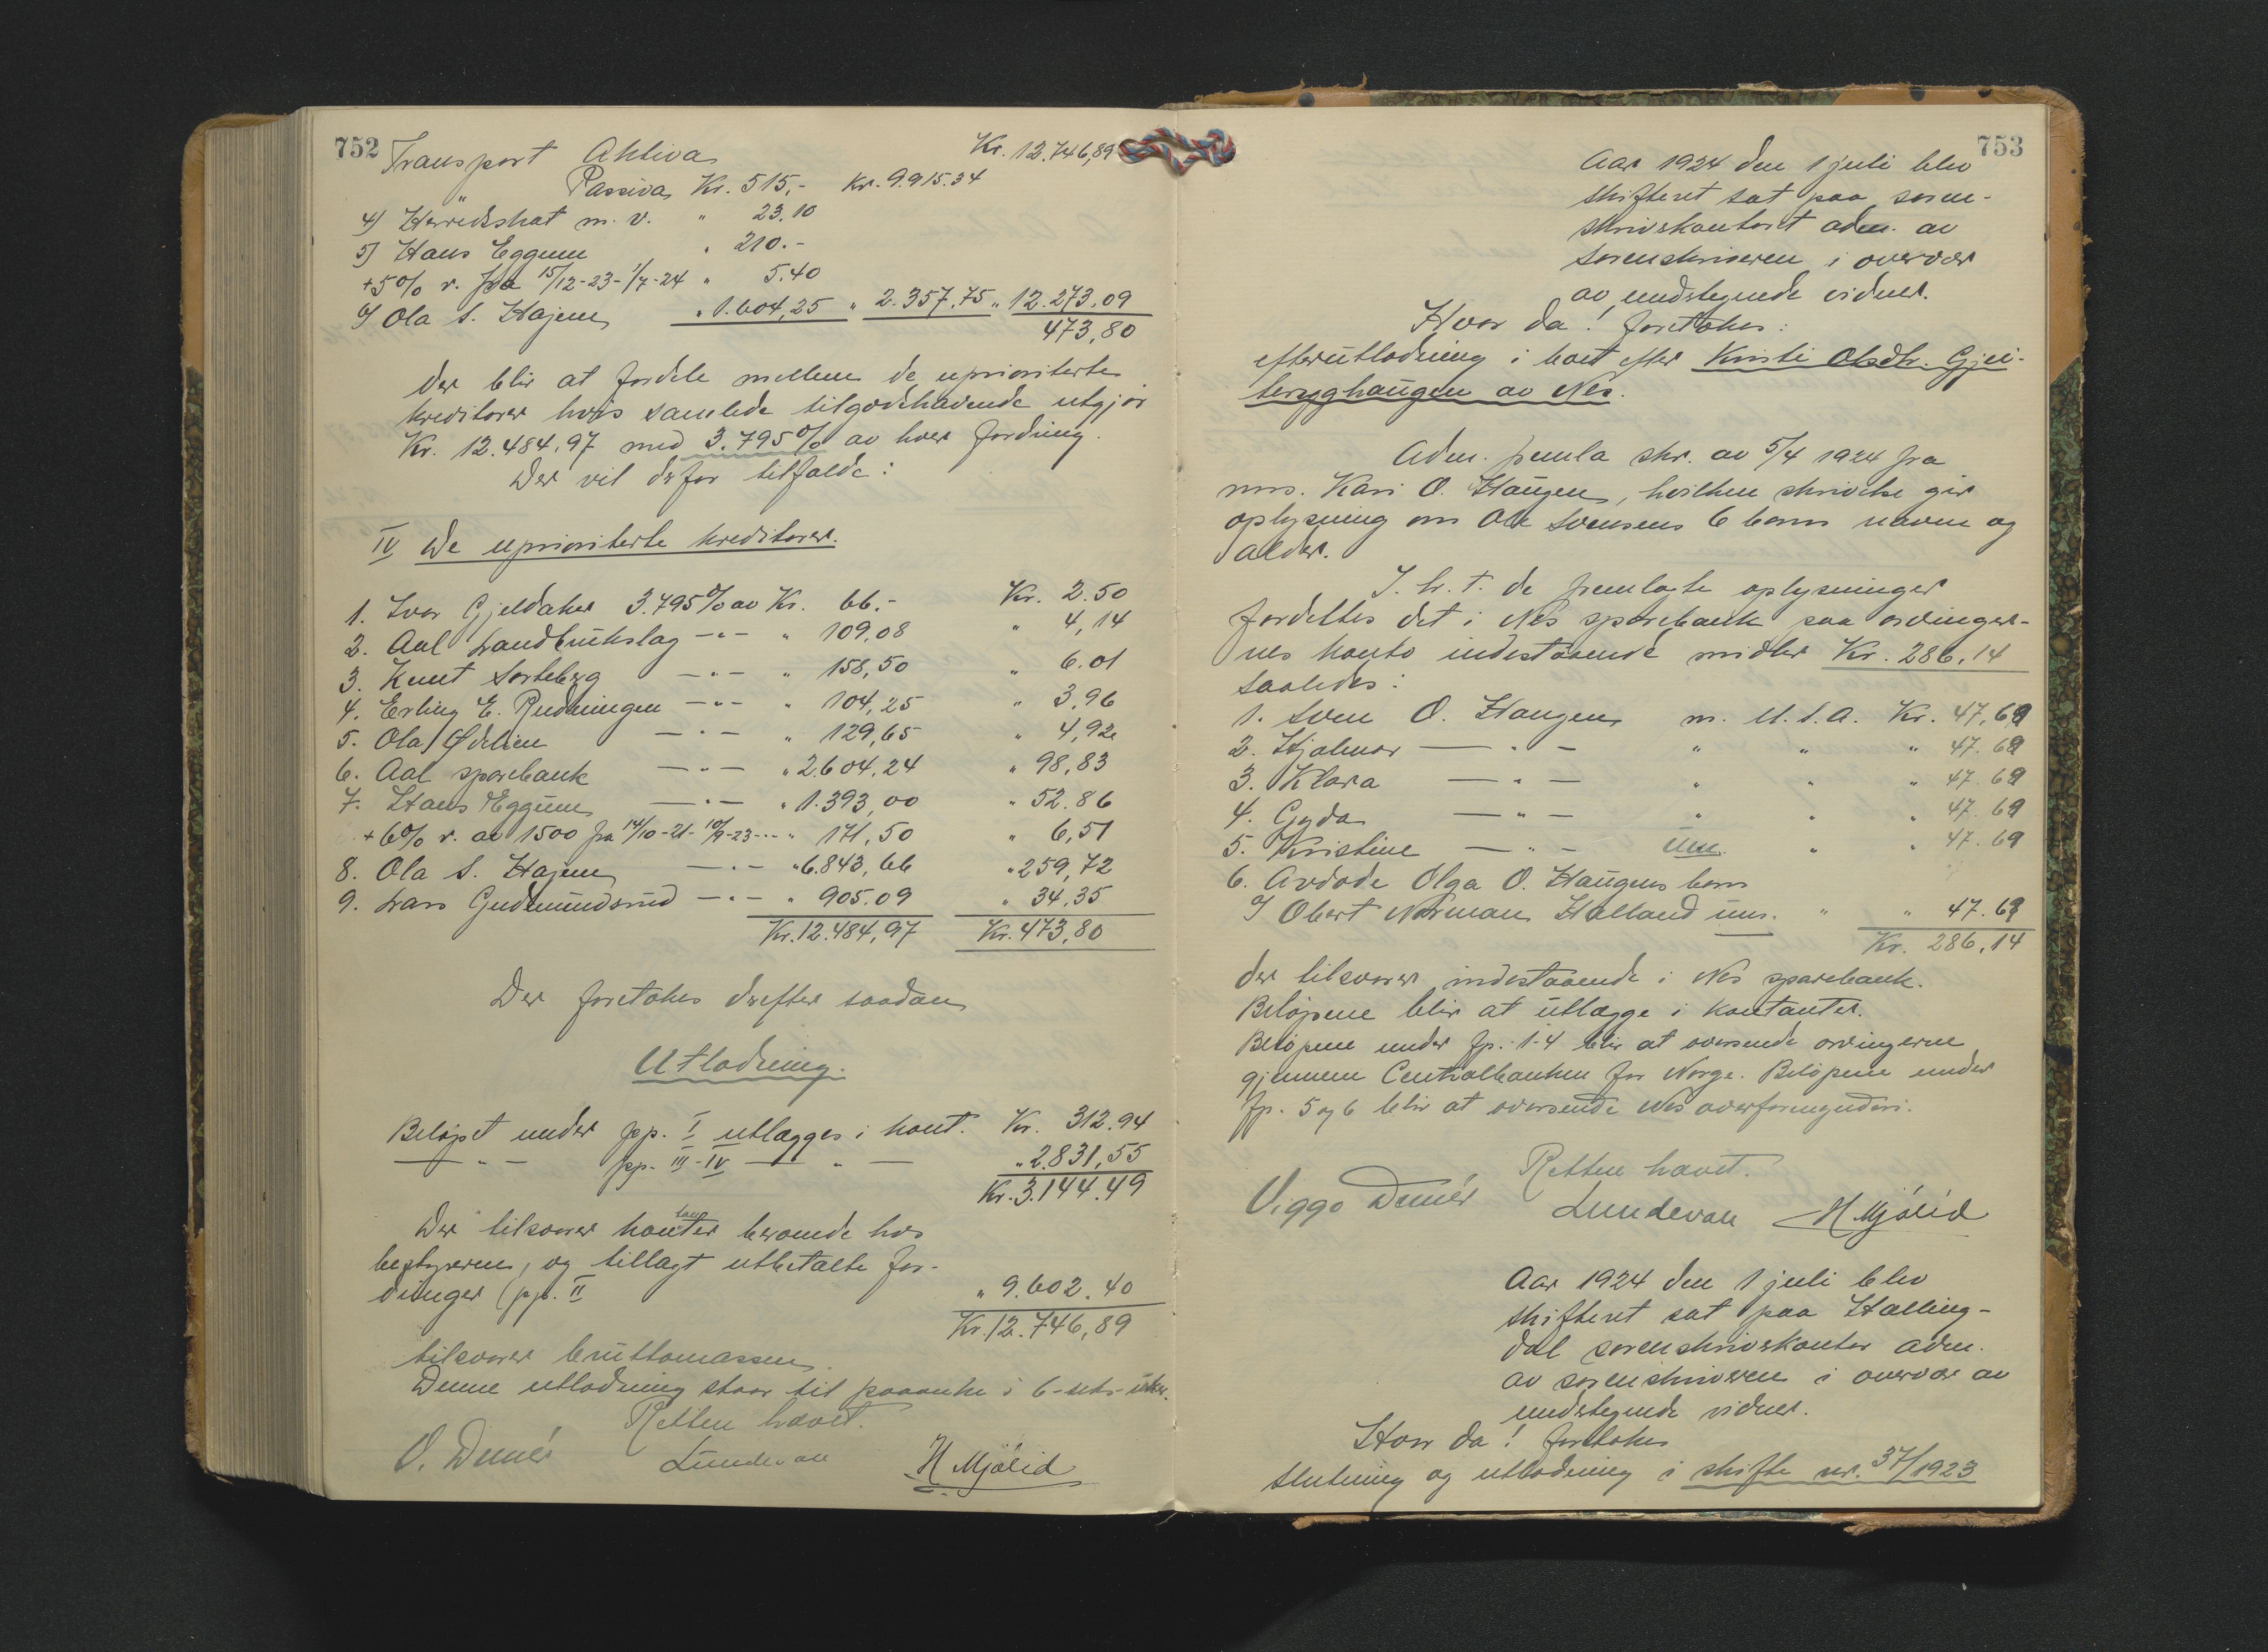 752
Transport Aktiva Kr. 12.746,89
" Passiva Kr. 515,- Kr. 9.915.34
4) Herredskat m. v. " 23.10
5) Hans Eggum " 210.-
+5% r. fra 15/12-23-1/7-24 " 5.40
Ola S. Hagen " 1.604,25 " 2.357,75 " 12.273,09
473,80
der blir at fordele mellem de uprioriterte
kreditorer hvis samlede tilgodehavende utgjør
Kr. 12.484,97 med 3.795% av hver fordring.
Der vil derfor tilfalde:
IV De uprioriterte kreditorer.
1. Ivar Gjeldaker 3.795% av Kr. 66.- Kr. 2.50
2. Aal Landbrukslag —"— " 109,08 " 4,14
3. Knut Sorteberg —"— " 158,50 " 6.01
4. Erling E. Rudningen —"— " 104,25 " 3,96
5. Ola Ødelien —"— " 129,65 " 4,92
6. Aal sparebank —"— " 2.604,24 " 98,83
7. Hans Eggum —"— " 1.393,00 " 52.86
+6% r. av 1500 fra 14/10-21-10/9-23 —"— " 171,50 " 6,51
8. Ola S. Hagen —"— " 6.843,66 " 259,72
9. Lars Gudmundsrud —"— " 905.09 " 34,35
Kr. 12.484,97 Kr. 473,80
Der foretokes derefter saadan
Utlodning.
Beløpet under pp. I utlægges i kont. Kr. 312.94
—"— pp. III-IV —"— " 2.831,55
Kr. 3.144.49
Der tilsvarer kontanter beroende hos
bestyreren, og tillagt utbetalte for-
dringer (pp. II " 9.602.40
Kr. 12.746,89
tilsvarer bruttomassen.
Denne utlodning staar til paaanke i 6-seks-uker.
Retten hævet.
V. Demér Lundevall H Mjølid
753
Aar 1924 den 1 juli blev
skifteret sat paa soren-
skriverkontoret adm. av
sorenskriveren i overvær
av undertegnede vidner.
Hvor da! foretokes:
efterutlodning i boet efter Kristi Olsdtr. Gjei-
terygghaugen av Nes.
Adm. fremla skr. av 5/4 1924 fra
mrs. Kari O. Haugen, hvilken skrivelse gir
oplysning om Ole Svensens 6 barns navne og
alder.
I. h. t. de fremlagte oplysninger
fordeltes det i Nes sparebank paa arvinger-
nes konto indestaaende midler Kr. 286,14
saaledes:
1. Sven O. Haugen m. U.S.A. Kr. 47,69
2. Hjalmar —"— " " " 47.69
3. Klara —"— " " " 47.69
4. Gyda —"— " " " 47.69
5. Kristine —"— um. " " 47.69
6. Avdøde Olga O. Haugens barn
Obert Norman Halland um. " " 47.69
Kr. 286,14
der tilsvarer indestaaende i Nes sparebank.
Beløpene blir at utlægge i kontanter.
Beløpene under fp. 1-4 blir at oversende arvingerne
gjennem Centralbanken for Norge. Beløpene under
fp. 5 og 6 blir at oversende Nes overformynderi.
Retten hævet.
Viggo Demér Lundevall H Mjølid
Aar 1924 den 1 juli blev
skifteret sat paa Halling-
dal sorenskriverkontor adm.
av sorenskriveren i overvær av
undertegnede vidner.
Hvor da! foretokes
slutning og utlodning i skifte nr. 37/1923